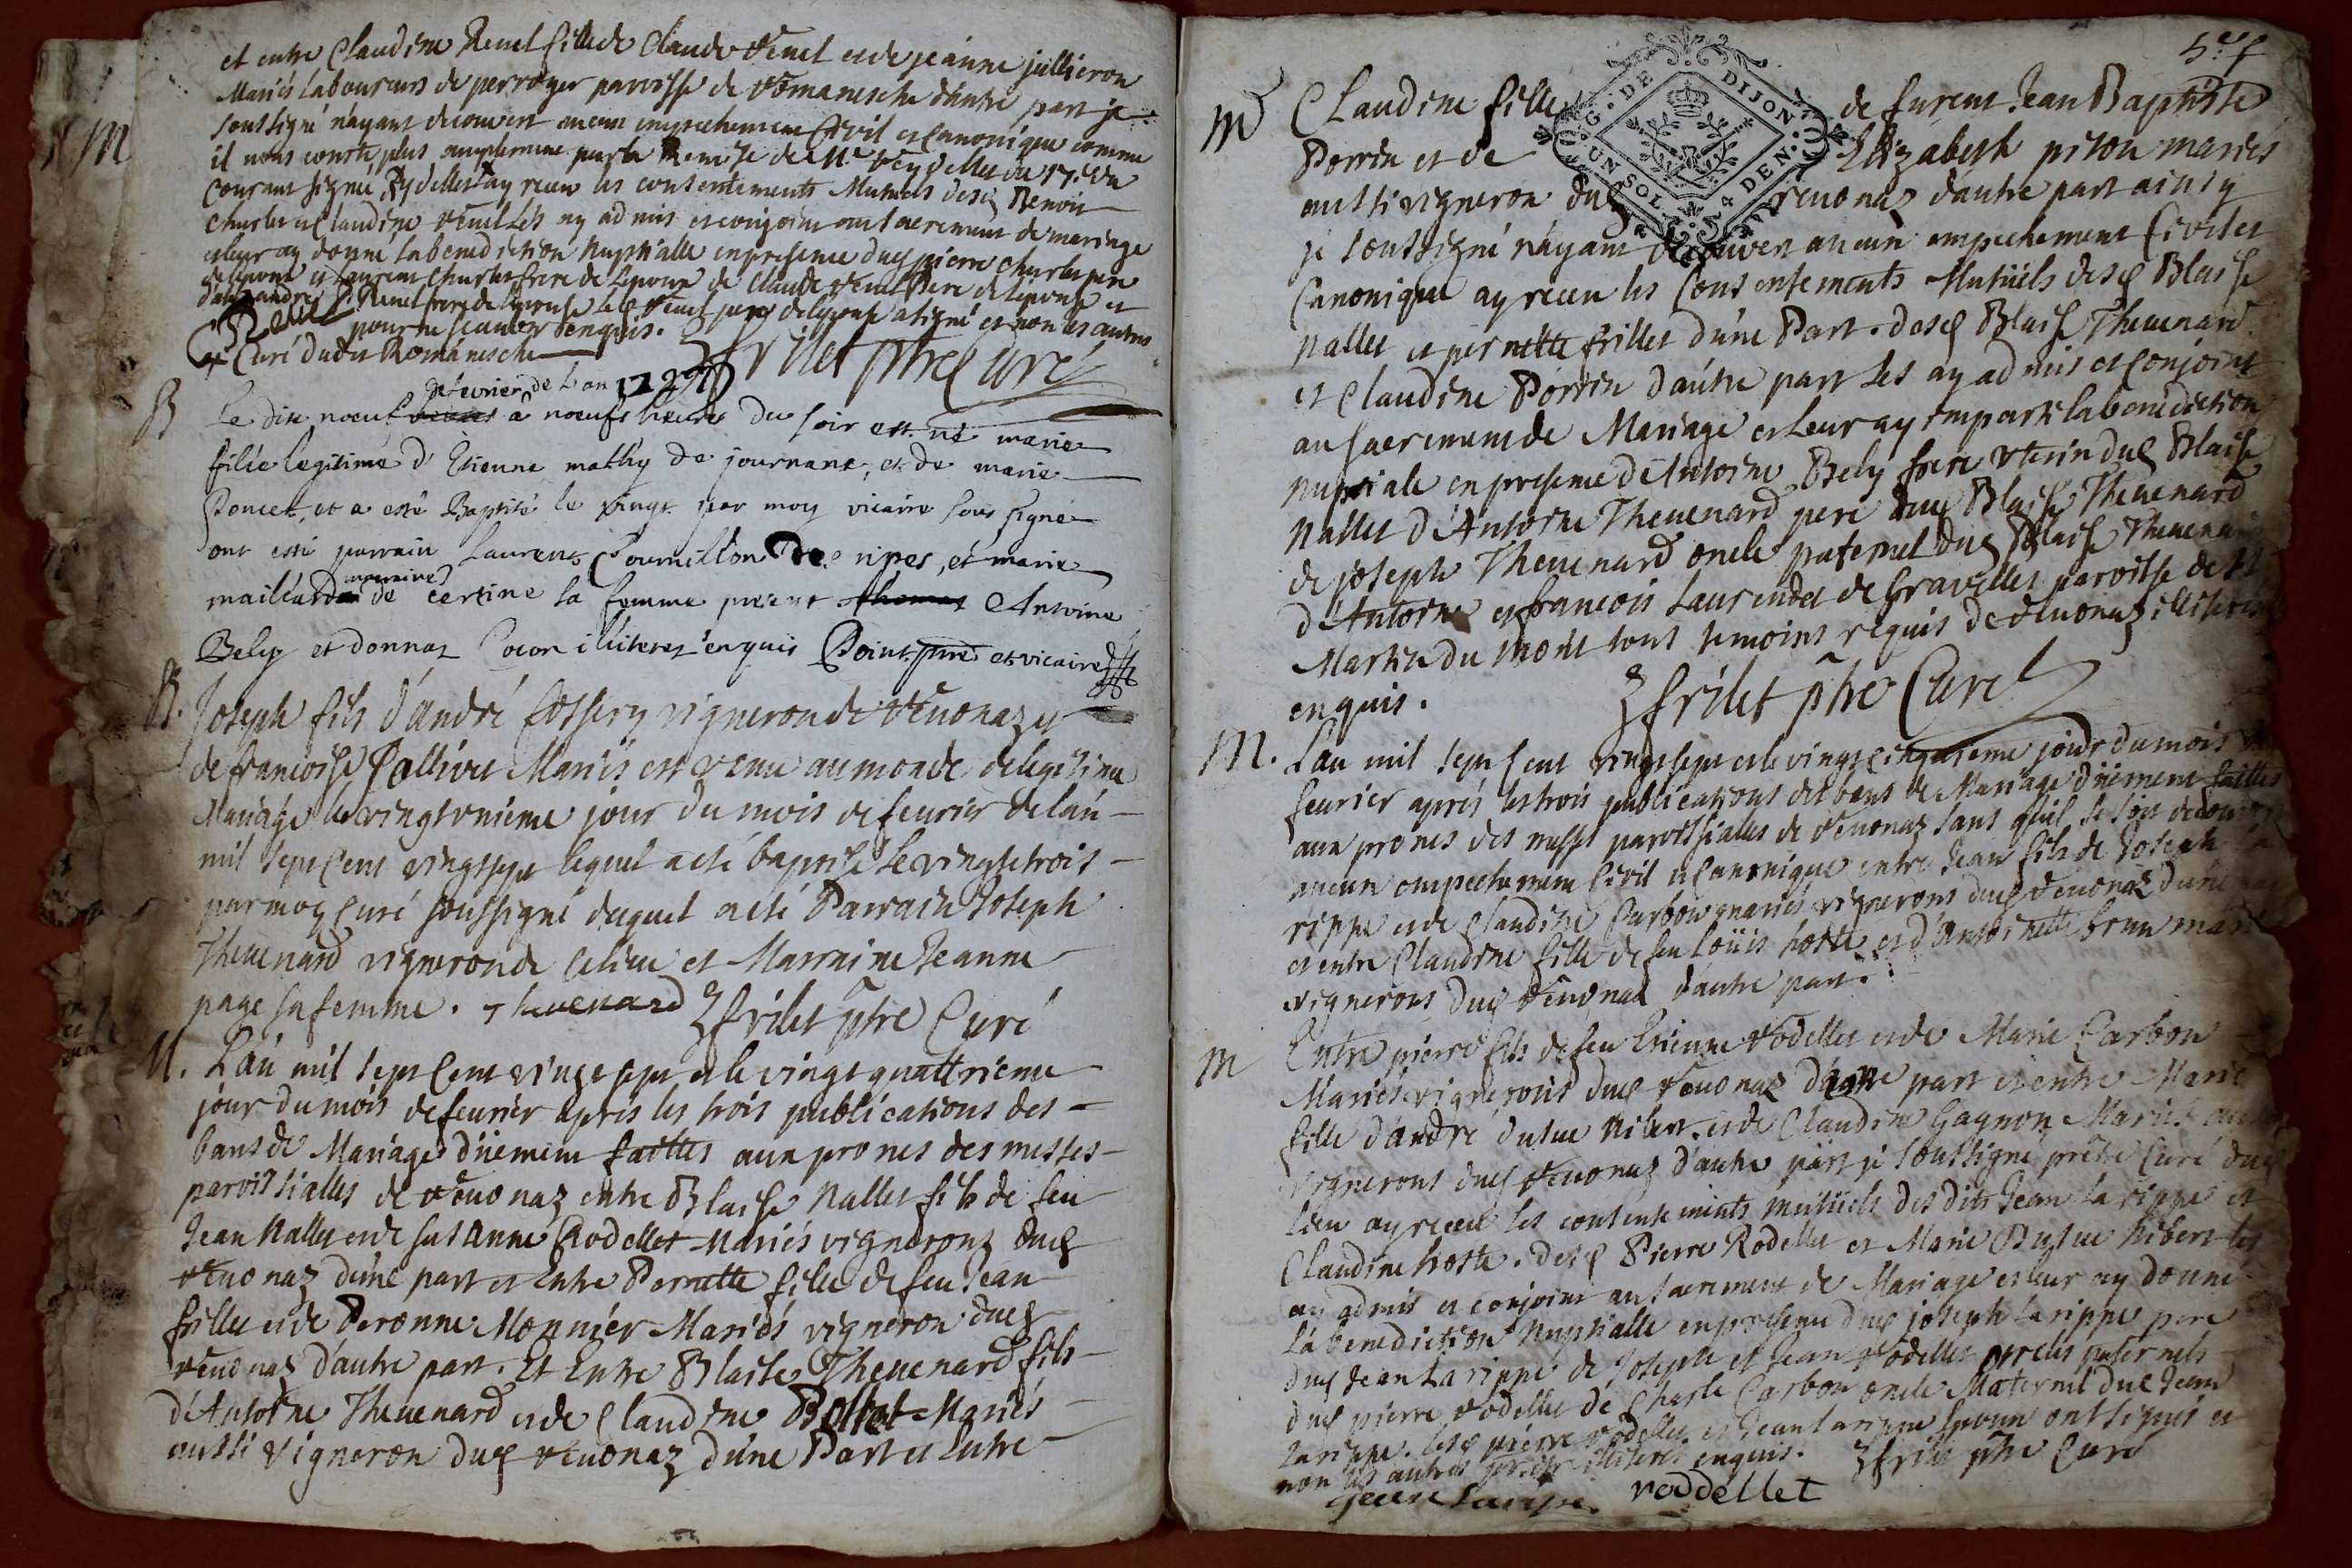 et entre Claudine Revel fille de Claude Revel et de jeanne jullieron
Mariés laboureurs de perroyer paroisse de Romanesche d'autre part je
soussigné n'ayant decouvert aucun empechement Civil et Canonique comme
il nous conste plus amplement par la Remise de Mre
courant signé ay receu les consentements Mutuels desd Benoit
Charles et Claudine Revel les ay admis et conjoint au sacrement de mariage
et leur ay donné la benediction Nuptialle en presence dud pierre Charles pere
de lepoux et Laurent Charles frere de Lepoux de Claude Revel Pere de lepouse et
d'autre andré Revel frere de lepouse led Revel pere de lepouse a signé et non les autres
pour ne scauoir enquis.
Curé dudit Romanesche frilet ptre Curé
B
de fevrier de L'an 1727
Le dix noeuf a noeufs heures du soir est né marie
fille legitime d'Etienne mathy de journans, et de marie
Poncet, et a esté Baptisé le vingt par moy vicaire sous signé
ont esté parrain Laurens Cournillon De ripes, et marie
maillard marraine de certine sa femme present thomas Antoine
Bely et donnaz illiteres enquis Point ptre et vicaire
B.
Joseph fils d'andré Cossery vigneron de Reuonaz et
de francoise Pallivet Mariés est venu au monde de legitime
Mariage le vingt unieme jour du mois de feurier de l'an
mil sept Cent vingt sept lequel a eté baptisé le vingt et trois
par moy Curé soussigné duquel a eté Parrain Joseph
Theuenard vigneron de Ce lieu et Marraine Jeanne
page sa femme. Thevenard frilet ptre Curé
M.
L'an mil sept Cent vingt sept et le vingt quattrieme
jour du mois de feurier apres les trois publications des
bans de Mariage düement faittes aux prones des messes
paroissialles de Reuonaz entre Blaise Nallet fils de feu
Jean Nallet et de susanne Rodellet Mariés vignerons dud
Reuonaz d'une part et Entre Pernette fille de feu Jean
frillet et de Peronne Monnier Mariés vigneron dud
Reuonaz d'autre part. Et Entre Blaise Theuenard fils
d'Antoine Theuenard et de Claudine Bottet Mariés
aussi vigneron dud Reuonaz d'une Part et Entre
M
5e f
G. DE DIJON
UN SOL 4 DEN.
M
Claudine fille de furent Jean Baptiste
Perrin et de Elizabeth piton mariés
aussi vigneron dud reuonaz d'autre part ainsy
je soussigné n'ayant decouvert aucun empechement Civil et
Canonique ay receu les Consentements Mutüels desd Blaise
Nallet et pernette frillet d'une Part. desd Blaise Theuenard
et Claudine Perrin d'autre part les ay admis et Conjoint
au sacrement de Mariage et leur ay imparti la benediction
nuptiale en presence d'Antoine Bely frere uterin dud Blaise
Nallet d'Antoine Theuenard pere dud Blaise Theuenard
de joseph Theuenard oncle paternel dud Blaise Theuenard
d'Antoine et francois Laurendet de Grauelles paroisse de St
Martin du Mont tous temoins requis de Reuonaz illiteres
enquis. frilet ptre Curé
M.
L'an mil sept Cent vingt sept et le vingt cinquieme jour du mois
feurier aprés les trois publications des bans de Mariage düement faittes
aux prones des messes paroissialles de Reuonaz sans qu'il se soit decouvert
aucun empechement Civil et Canonique entre Jean fils de Joseph La
rippe et de Claudine Carbon mariés vignerons dud Reuonaz d'une
et entre Claudine fille de feu Loüis hoste et d'antoinette brun mariés
vignerons dud Reuonaz d'autre part.
M
Entre pierre fils de feu Etienne Rodellet et de Marie Carbon
Mariés vignerons dud Reuonaz d'autre part et entre Marie
fille d'andré et de Claudine Gagnon Mariés
vignerons dud Reuonaz d'autre part je soussigné prêtre Curé dud
lieu ay receu les consentements mutüels des dits Jean La rippe et
Claudine hoste. desd Pierre Rodellet et Marie les
ay admis et conjoint au sacrement de Mariage et leur ay donné
la benediction Nuptialle en presence dud joseph Larippe pere
dud Jean La rippe de Joseph et Jean Rodellet oncles paternels
dud pierre Rodellet de Charle Carbon oncle Maternel dud Jean
Larippe. lesd pierre Rodellet et Jean Larippe Epoux ont signés et
non les autres illiteres enquis. frilet ptre Curé
Jean Larippe. roddellet